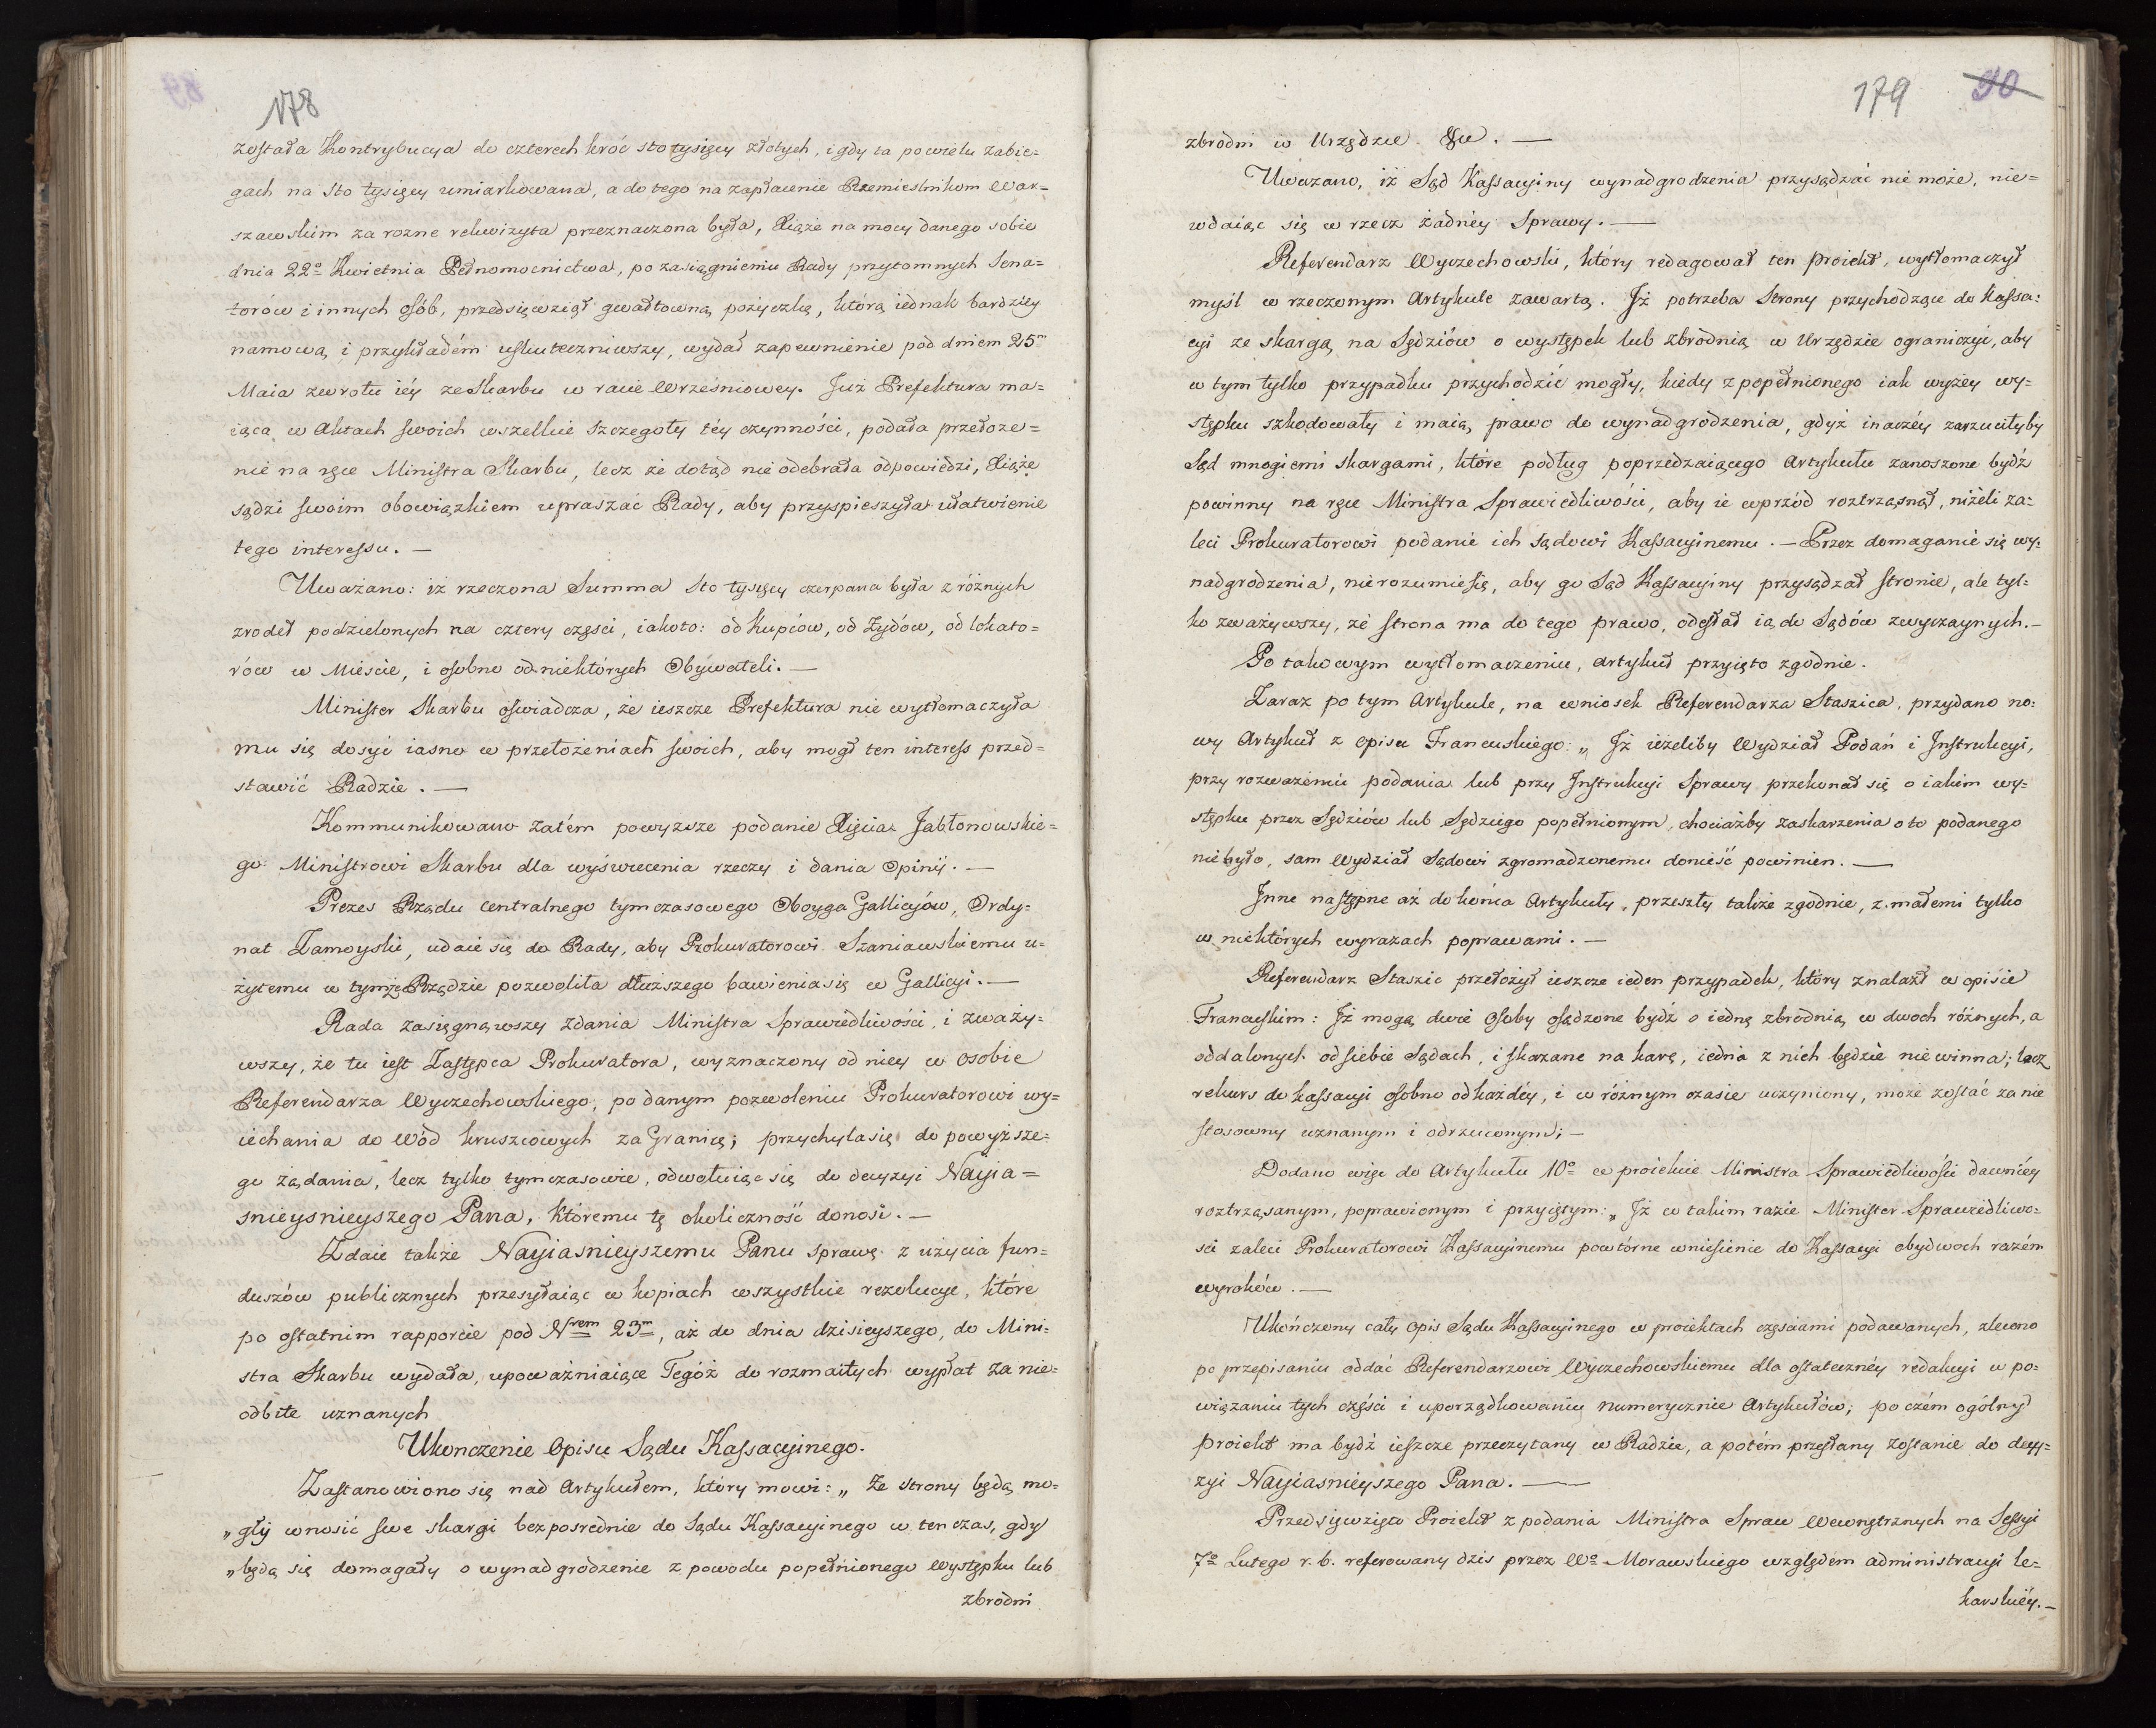 178
został̷a Kontrybucya do czterech kroć sto tysięcy złotych, i gdy ta po wielu zabie=
gach na sto tysięcy umiarkowana, a do tego na zapłacenie Rzemieslnikom War=
szawskim za rozne rekwizyta przeznaczona była, Xiąże na mocy danego sobie
dnia 22º Kwietnia Pełnomocnictwa, po zasiągnieniu Rady przytomnych Sena=
torów i innych osób, przedsięwziął gwałtowną pożyczkę, którą iednak bardziey
namową i przykładém uskuteczniwszy, wydał zapewnienie pod dniem 25m
Maia zwrotu iéy ze Skarbu w racie Wrześniowey. Już Prefektura ma=
iąca w Aktach swoich wszelkie szczegoły téy czynności, podała przełoże=
nie na ręce Ministra Skarbu, lecz że dotąd nie odebrała odpowiedzi, Xiąże
sądzi swoim obowiązkiem upraszać Rady, aby przyspieszyła ułatwienie
tego interessu. —
Uważano: iż rzeczona Summa sto tysięcy czerpana była z różnych
zrodeł podzielonych na cztery części, iakoto: od Kupców, od Żydów, od lokato=
rów w Mieście, i osobno od niektórych Obywateli. —
Minister Skarbu oświadcza, że ieszcze Prefektura nie wytłomaczyła
mu się dosyć iasno w przełożeniach swoich, aby mogł ten interess przed=
stawić Radzie. —
Kommunikowano zatém powyższe podanie Xięcia Jabłonowskie=
go Ministrowi Skarbu dla wyświecenia rzeczy i dania Opinij. —
Prezes Rządu Centralnego tymczasowego Oboyga Gallicyów, Ordy=
nat Zamoyski, udaie się do Rady, aby Prokuratorowi Szaniawskiemu u=
żytemu w tymże Rządzie pozwoliła dłuższego bawienia się w Gallicyi. —
Rada zasięgnąwszy zdania Ministra Sprawiedliwości, i zważy=
wszy, że tu iest Zastępca Prokuratora, wyznaczony od niey w osobie
Referendarza Wyczechowskiego, po danym pozwoleniu Prokuratorowi wy=
iechania do Wód kruszcowych za Granicę; przychyla się do powyższe=
go żądania, lecz tylko tymczasowie, odwołuiąc się do decyzyi Nayia=
snieysnieyszego Pana, któremu tę okoliczność donosi. —
Zdaie także Nayiasnieyszemu Panu sprawę z użycia fun=
duszów publicznych przesyłaiąc w kopiach wszystkie rezolucye, które
po ostatnim rapporcie pod Nrem 23m, aż do dnia dzisieyszego, do Mini=
stra Skarbu wydała, upoważniaiące Tegóż do rozmaitych wypłat za nie=
odbite uznanych
Ukonczenie Opisu Sądu Kassacyinego.
Zastanowiono się nad Artykułem, który mowi: „ Ze strony będą mo=
„gły wnosić swe skargi bezposrednie do Sądu Kassacyinego w ten czas, gdy
„będą się domagały o wynadgrodzenie z powodu popełnionego Występku lub
zbrodni
179 90
zbrodni w Urzędzie &c. —
Uważano, iż Sąd Kassacyiny wynadgrodzenia przysądzać nie może, nie=
wdaiąc się w rzecz żadnéy Sprawy. —
Referendarz Wyczechowski, który redagował ten proiekt, wytłomaczył
myśl w rzeczonym Artykule zawartą. Iż potrzeba Strony przychodzące do Kassa=
cyi ze skargą na Sędziów o występek lub zbrodnią w Urzędzie ograniczyć, aby
w tym tylko przypadku przychodzić mogły, kiedy z popełnionego iak wyżey wy=
stępku szkodowały i maią prawo do wynadgrodzenia, gdyż inaczéy zarzuciłyby
Sąd mnogiemi skargami, które podług poprzedzaiącego Artykułu zanoszone bydź
powinny na ręce Ministra Sprawiedliwości, aby ie wprzód roztrząsnął, niżeli za=
leci Prokuratorowi podanie ich Sądowi Kassacyinemu. — Przez domaganie się wy=
nadgrodzenia, nierozumie się, aby go Sąd Kassacyiny przysądzał stronie, ale tyl=
ko zważywszy, że strona ma do tego prawo, odesłał ią do Sądów zwyczaynych. —
Po takowym wytłomaczeniu, Artykuł przyięto zgodnie.
Zaraz po tym Artykule, na wniosek Referendarza Staszica, przydano no=
wy Artykuł z Opisu Francuskiego: „ Iż ieżeliby Wydział Podań i Instrukcyi,
przy rozważeniu podania lub przy Instrukcyi Sprawy przekonał się o iakim wy=
stępku przez Sędziów lub Sędziego popełnionym, chociażby zaskarzenia o to podanego
niebyło, sam Wydział Sądowi zgromadzonemu donieść powinien. —
Inne następne aż do końca Artykuły, przeszły także zgodnie, z małemi tylko
w niektórych wyrazach poprawami. —
Referendarz Staszic przełożył ieszcze ieden przypadek, który znalazł w opisie
Francuskim: Iż mogą dwie Osoby osądzone bydź o iedną zbrodnią w dwoch różnych, a
oddalonych od siebie Sądach, i skazane na karę, iedna z nich będzie niewinna; lecz
rekurs do kassacyi osobno od każdéy, i w różnym czasie uczyniony, może zostać za nie
stosowny uznanym i odrzuconym; —
Dodano więc do Artykułu 10º w proiekcie Ministra Sprawiedliwości dawniéy
roztrząsanym, poprawionym i przyiętym: „ Iż w takim razie Minister Sprawiedliwo=
sci zaleci Prokuratorowi Kassacyinemu powtórne wniesienie do Kassacyi obydwoch razém
wyroków. —
Ukończony cały Opis Sądu Kassacyinego w proiektach częściami podawanych, zlecono
po przepisaniu oddać Referendarzowi Wyczechowskiemu dla ostateczney redakcyi w po=
wiązaniu tych części i uporządkowaniu numerycznie Artykułów; po czém ogólny
proiekt ma bydź ieszcze przeczytany w Radzie, a potém przesłany zostanie do decy=
zyi Nayiasnieyszego Pana. —
Przedsięwzięto Proiekt z podania Ministra Spraw Wewnętrznych na Sessyi
7º Lutego r. b. referowany dzis przez Wº Morawskiego względem administracyi le=
karskiéy. —